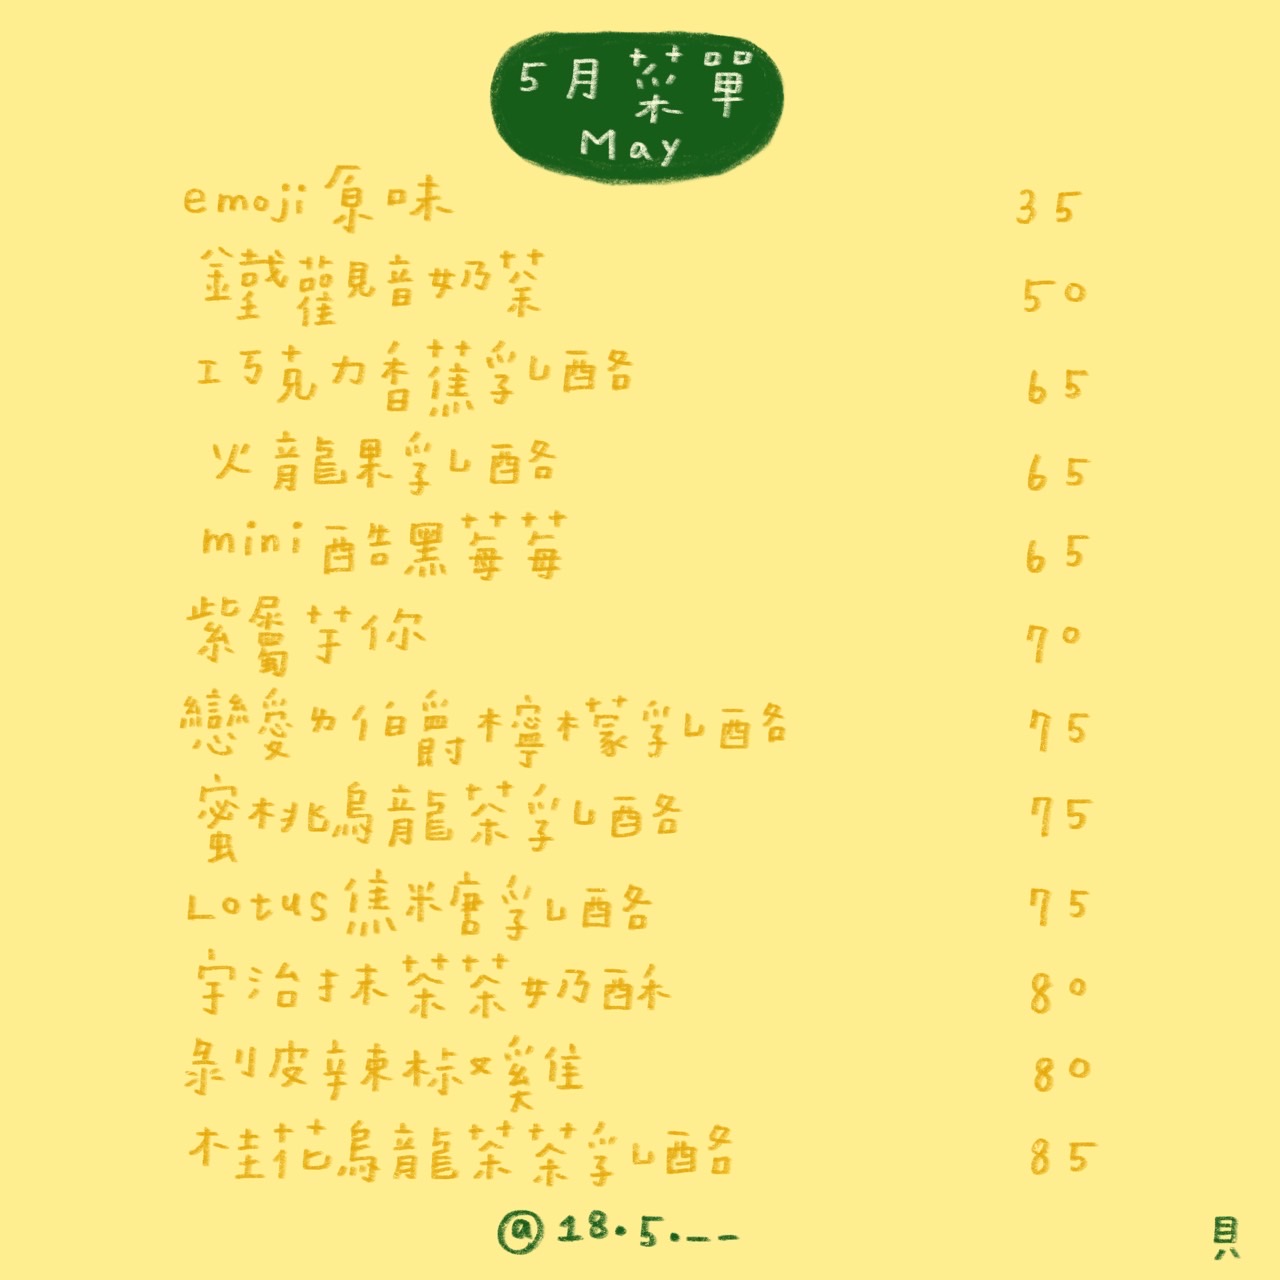 5月菜單
May
emoji原味 35
鐵觀音奶茶 50
巧克力香蕉乳酪 65
火龍果乳酪 65
mini酷黑莓莓 65
紫屬芋你 70
戀愛ㄉ伯爵檸檬乳酪 75
蜜桃烏龍茶乳酪 75
Lotus焦糖乳酪 75
宇治抹茶茶奶酥 80
剝皮辣椒雞 80
桂花烏龍茶茶乳酪 85
@18.5.__
貝